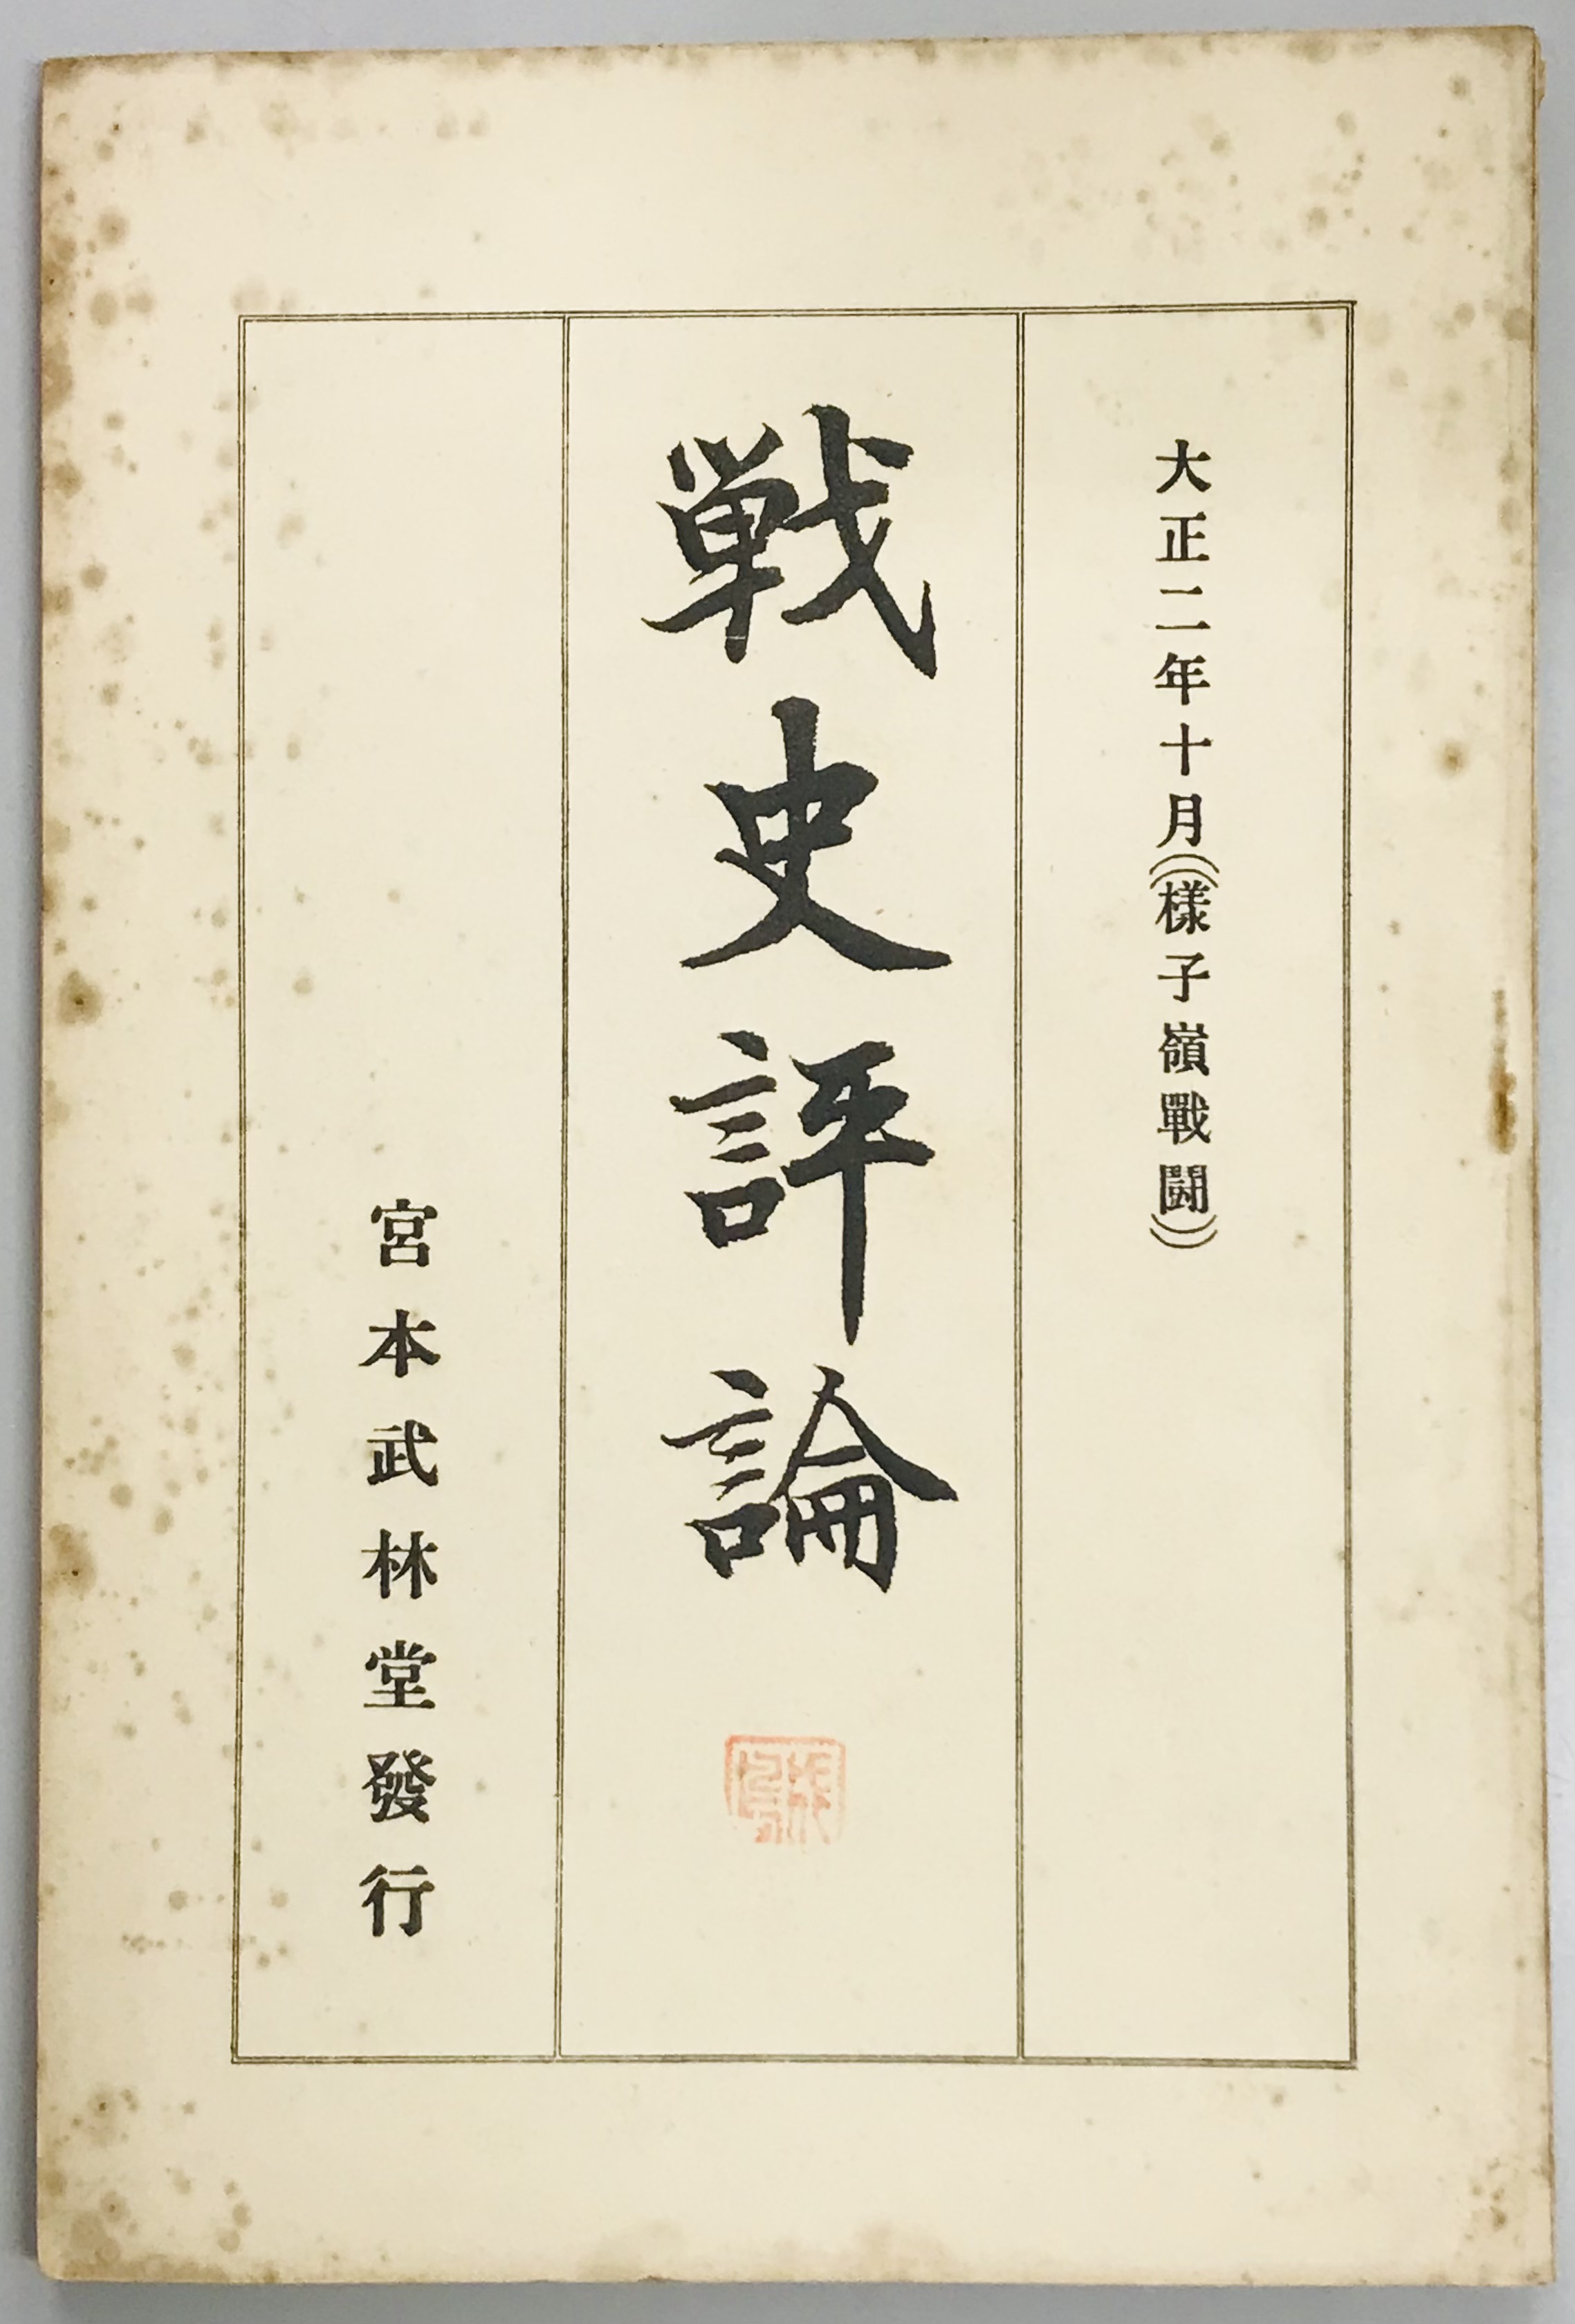 大正二年十月(樣子嶺戰鬪)
戦史評論
宮本武林堂發行